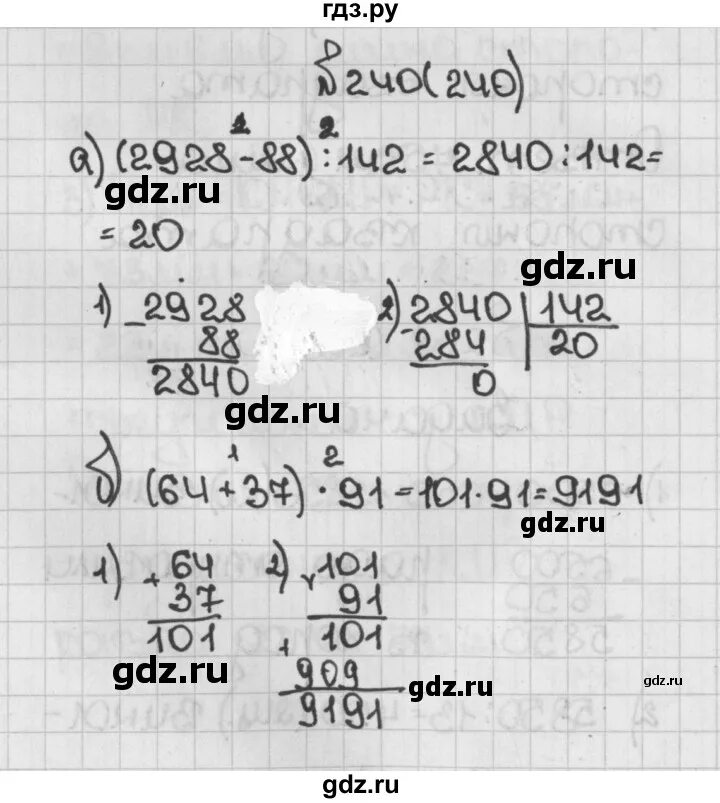 гдз.ру
№240(240)
1 2
а) (2928-88):142 = 2840:142=
gdz.ru
= 20
gdz.ru
1) - 2928
88
2840
2) - 2840 | 142
284 20
0
gdz.ru
1 2
б) (64+37)·91=101·91=9191
gdz.ru
1) + 64
37
101
2) × 101
91
+ 101
909
9191
gdz.ru
gdz.ru
gdz.ru
gdz.ru